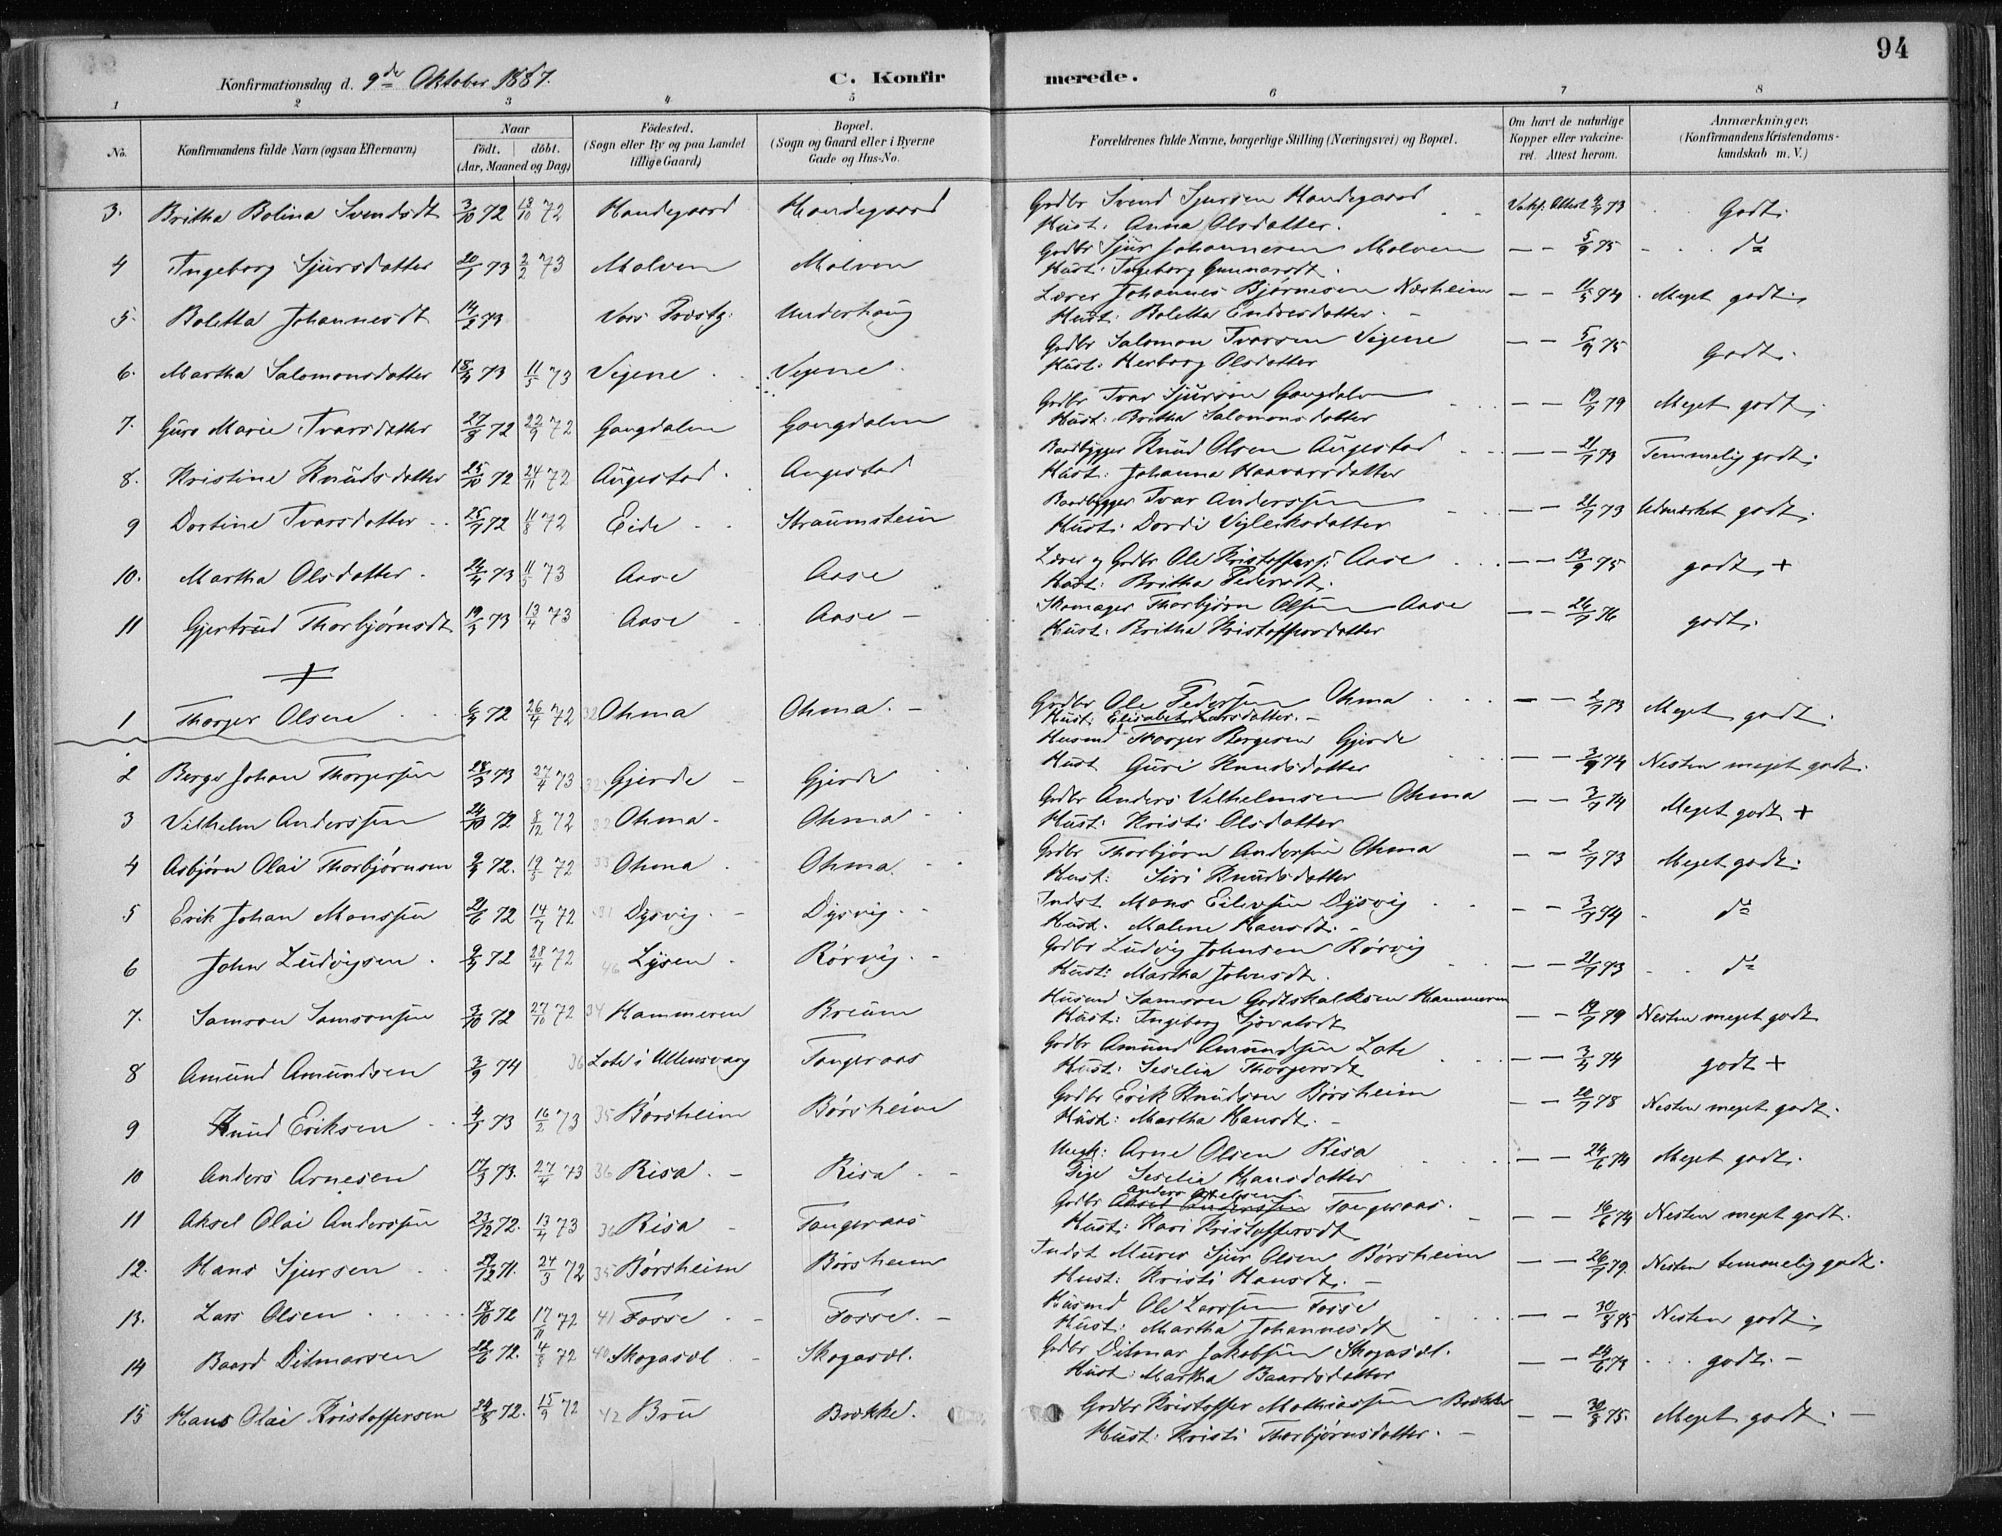 94
Konfirmationsdag d. 9de Oktober 1887.
C. Konfirmerede.
1 2 3 4 5 6 7 8
No.
Konfirmandens fulde Navn (ogsaa Efternavn)
Naar
født. døbt.
(Aar, Maaned og Dag)
Fødested.
(Sogn eller By og paa Landet
tillige Gaard)
Bopæl.
(Sogn og Gaard eller i Byerne
Gade og Hus-No.
Forældrenes fulde Navne, borgerlige Stilling (Næringsvei) og Bopæl.
Om havt de naturlige
Kopper eller vakcine-
ret. Attest herom.
Anmærkninger.
(Konfirmandens Kristendoms-
kundskab m. V.)
3. Britha Bolina Svendsdt 3/10 72 13/10 72 Handegaard Handegaard Gdbr Svend Sjursen Handegaard 73 Godt.
Hust. Anna Olsdatter.
4 Ingeborg Sjursdatter 20/1 73 2/2 73 Malven Malven Gdbr Sjur Johannesen Malven — — 5/9 75 do
Hust. Ingeborg Gunnarsdt.
5. Boletta Johannesdt 14/2 73 Vors Prstg. Underhaug Lærer Johannes Bjørnesen Næsheim — — 11/5 74 Meget godt.
Hust: Boletta Endresdatter.
6. Martha Salomonsdatter 18/4 73 11/5 73 Vejene Vejene Gdbr Salomon Ivarsen Vejene — — 5/9 75 Godt.
Hust: Herborg Olsdatter
7. Guro Marie Ivarsdatter 27/8 72 22/9 72 Gangdalen Gangdalen Gdbr Ivar Sjursen Gangdalen — — 19/7 79 Meget godt.
Hust: Britha Salomonsdatter
8. Kristine Knudsdatter 25/10 72 24/11 72 Augestad Augestad Baadbygger Knud Olsen Augestad — — 21/7 73 Temmelig godt.
Hust: Johanna Haavarsdatter
9 Dortine Ivarsdatter 25/7 72 11/8 72 Eide Straumstein Baadbygger Ivar Anderssen — — 21/7 73 Udmærket godt.
Hust: Dordi Vigleiksdatter
10. Martha Olsdatter. 24/4 73 11/5 73 Aase Aase Lærer og Gdbr Ole Kristoffers: Aase — — 13/9 75 godt +
Hust: Britha Pedersdt.
11 Gjertrud Thorbjørnsdt 19/3 73 13/4 73 Aase Aase Skomager Thorbjørn Olsen Aase — — 26/7 76 godt.
Hust: Britha Kristoffersdatter
1 Thorger Olsen 6/4 72 26/4 72 32 Ohma Ohma. Gdbr Ole Pedersen Ohma — — 2/7 73 Meget godt.
Hust: Elisabet Larsdatter.
2 Berge Johan Thorgersen 28/3 73 27/4 73 32 Gjerde Gjerde Husmd Thorger Bergesen Gjerde — — 3/7 74 Nesten meget godt.
Hust Guri Knudsdatter
3 Vilhelm Anderssen 24/10 72 8/12 72 32 Ohma Ohma Gdbr Anders Vilhelmsen Ohma — — 3/7 74 Meget godt +
Hust: Kristi Olsdatter
4 Asbjørn Olai Thorbjørnsen 9/4 72. 19/5 72 33 Ohma Ohma Gdbr Thorbjørn Andersen Ohma — — 2/7 73 Meget godt.
Hust: Siri Knudsdatter
5 Erik Johan Monssen 21/6 72 14/7 72 31 Dysvig. Dysvig. Indst Mons Eilevsen Dysvig — — 3/7 74 do
Hust. Malene Hansdt.
6 John Ludvigsen. 9/4 72 28/4 72 46 Lysen Rørvig. Gdbr Ludvig Johnsen Rørvig — — 21/7 73 do
Hust: Martha Johnsdt.
7. Samson Samsonsen 3/10 72 27/10 72 34 Hammeren Breum Husmd Samson Godtskalksen Hammeren — — 19/7 79 Nesten meget godt
Hust: Ingeborg Sjovatsdt
8 Amund Amundsen 3/9 74 36 Lote i Ullensvang Tangeraas Gdbr Amund Amundsen Lote — — 3/4 74 godt +
Hust: Seselia Thorgersdt
9 Knud Eriksen 4/1 73 16/2 73 35 Børsheim Børsheim Gdbr Erik Knudsen Børsheim — — 20/7 78 Nesten meget godt.
Hust: Martha Hansdt.
10 Anders Arnesen 17/3 73. 27/4 73 36 Risa. Risa Ungk: Arne Olsen Risa — — 24/6 74 Meget godt.
Pige Seselia Hansdatter
11 Aksel Olai Anderssen 23/12 72. 13/4 73 36 Risa Tangeraas Gdbr Aksel Anderssen Anders Akselsen Tangeraas. — — 16/6 74 Nesten meget godt.
Hust: Kari Kristoffersdt
12. Hans Sjursen 29/12 71. 24/3 72 35 Børsheim Børsheim Indst Murer Sjur Olsen Børsheim — — 26/7 79. Nesten temmelig godt.
Hust: Kristi Hansdt.
13. Lars Olsen 18/10 72 17/11 72 41 Fosse Fosse. Husmd Ole Larssen Fosse — — 30/8 75 Nesten godt.
Hust: Martha Johannesdt
14 Baard Ditmarsen 22/6 72. 4/8 72 40 Skogasæl Skogasæl. Gdbr Ditmar Jakobsen Skogasæl. — — 24/6 74 godt.
Hust: Martha Baardsdatter
15 Hans Olai Kristoffersen 24/8 72. 15/9 72 42 Bru Brekke. Gdbr Kristoffer Mathiassen Brekke — — 30/8 75. Meget godt.
Hust: Kristi Thorbjørnsdatter.